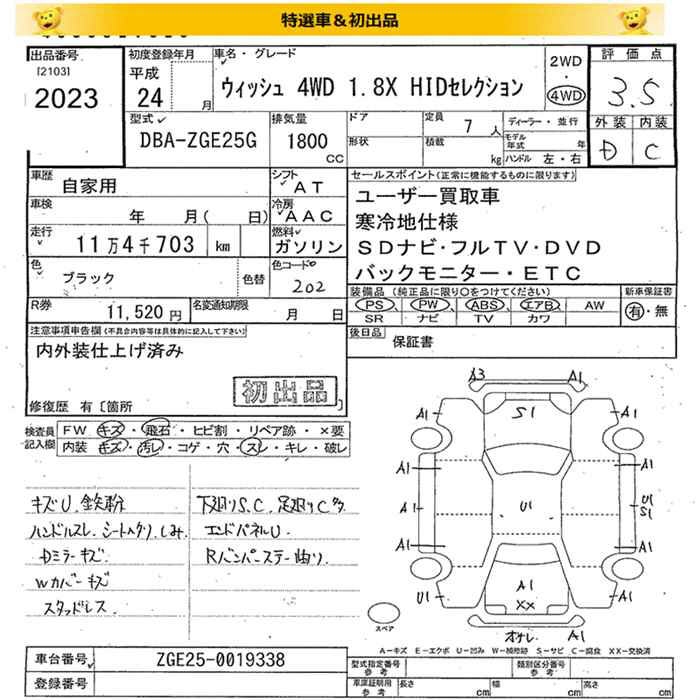 特選車&初出品
出品番号
[2103]
2023
初度登録年月
平成
24 月
車名・グレード
ウィッシュ 4WD 1.8X HIDセレクション
2WD
・
4WD
評価点
3.5
外装 内装
D C
型式
DBA-ZGE25G
排気量
1800
CC
ドア
形状
定員 7 人
積載 kg
ディーラー・並行
モデル年式 年
ハンドル 左・右
車歴
自家用
シフト
AT
車検
年 月( 日)
冷房
AAC
走行
11万4千703 km
燃料
ガソリン
色
ブラック
色替
色コードNo
202
R券
11,520円
名変通知期限
月 日
セールスポイント(正常に機能するものに限ります)
ユーザー買取車
寒冷地仕様
SDナビ・フルTV・DVD
バックモニター・ETC
装備品(純正品に限り○をつけてください)
PS PW ABS エアB AW
SR ナビ TV カワ
新車保証書
有・無
後日品
保証書
注意事項申告欄(不具合内容等は具体的に記入して下さい)
内外装仕上げ済み
初出品
修復歴 有〔箇所
検査員
記入欄
FW キズ・飛石・ヒビ割・リペア跡・×要
内装 キズ・汚レ・コゲ・穴・スレ・キレ・破レ
キズU、鉄粉
ハンドルスレ、シートヘタリ、しみ
Dミラーキズ
Wカバーキズ
スタッドレス
下廻りS、C、足廻りC多
エンドパネルU
Rバンパーステー曲り
A3 A1
A1 S1 A1
A1 A1
A1 U1 U1
S1
A1 A1
U1 A1 A1
XX
オサレ A1
スペア
A-キズ E-エクボ U-凹み W-補修跡 S-サビ C-腐食 XX-交換済
車台番号
ZGE25-0019338
登録番号
型式指定番号
参考
類別区分番号
参考
車庫証明用
参考
長さ cm 幅 cm 高さ cm